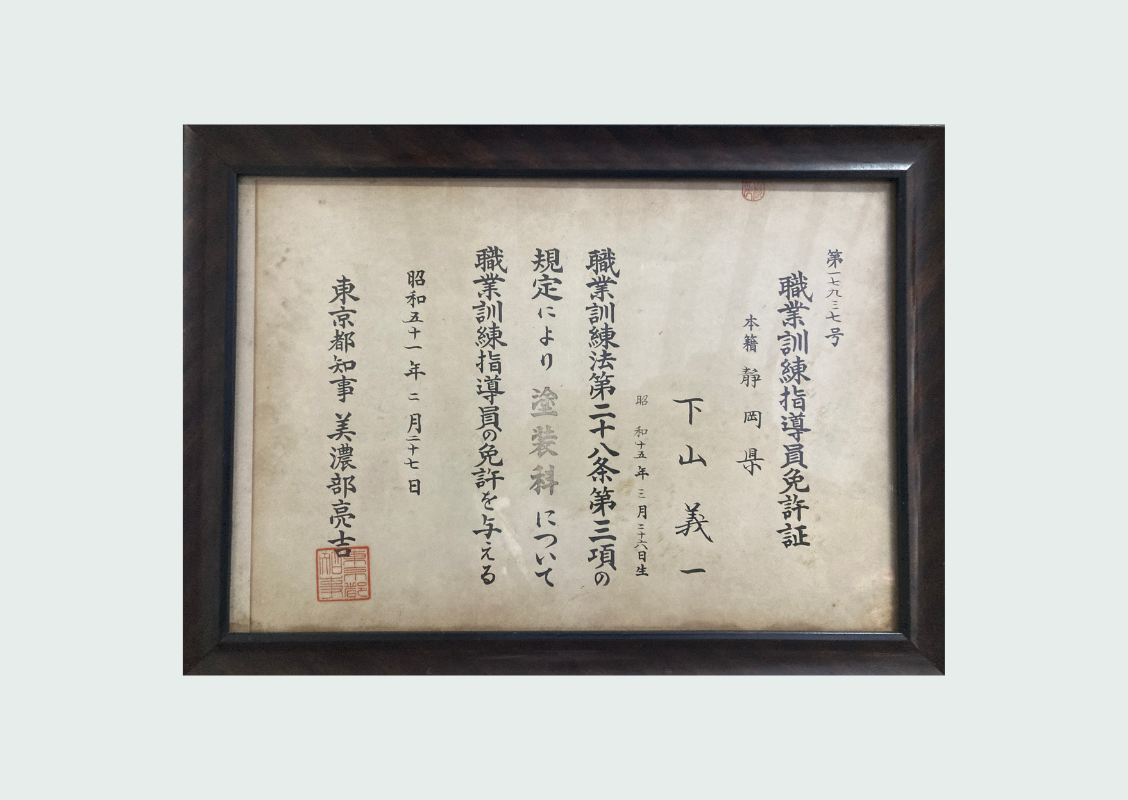 第一七九三七号
職業訓練指導員免許証
本籍 静岡県
下山義一
昭和十五年三月二十六日生
職業訓練法第二十八条第三項の
規定により塗装科について
職業訓練指導員の免許を与える
昭和五十一年二月二十七日
東京都知事 美濃部亮吉